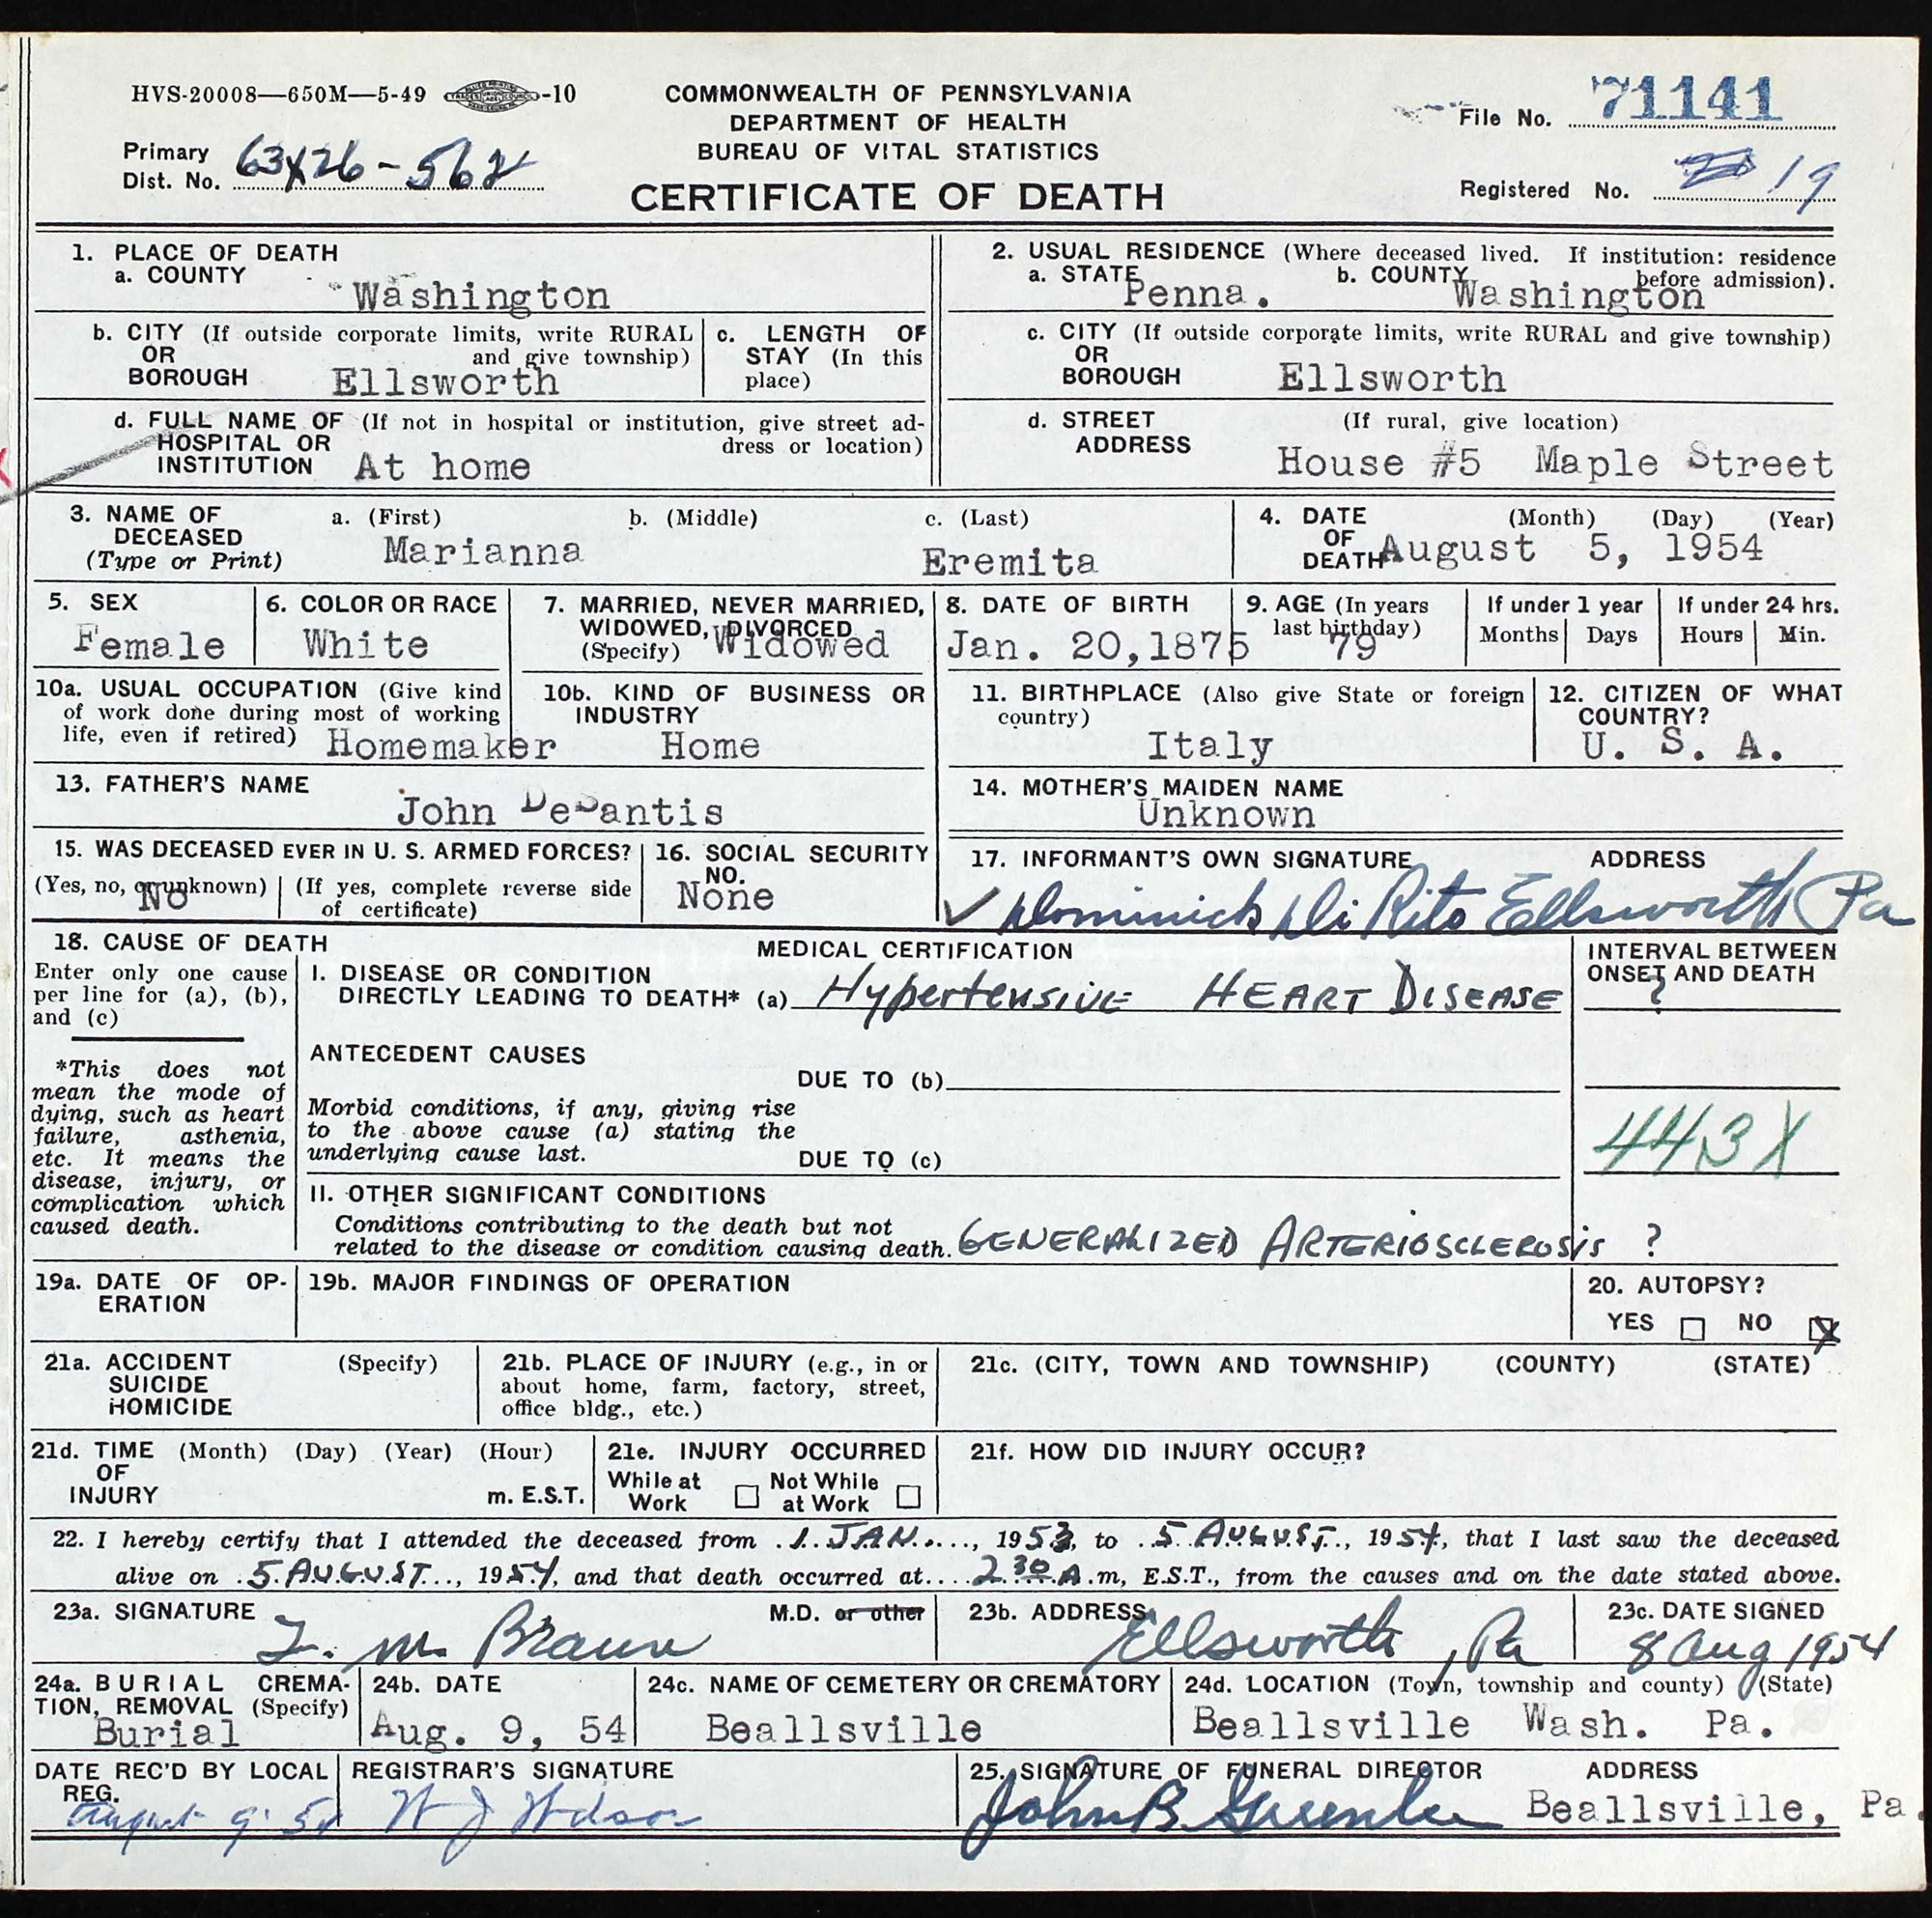 HVS-20008—650M—5-49 -10
COMMONWEALTH OF PENNSYLVANIA
DEPARTMENT OF HEALTH
BUREAU OF VITAL STATISTICS
CERTIFICATE OF DEATH
File No. 71141
Primary
Dist. No. 63X26-562
Registered No. 19
1. PLACE OF DEATH
a. COUNTY
Washington
2. USUAL RESIDENCE (Where deceased lived. If institution: residence
before admission).
a. STATE Penna. b. COUNTY Washington
b. CITY (If outside corporate limits, write RURAL
OR and give township)
BOROUGH Ellsworth
c. LENGTH OF
STAY (In this
place)
c. CITY (If outside corporate limits, write RURAL and give township)
OR
BOROUGH Ellsworth
d. FULL NAME OF (If not in hospital or institution, give street ad-
HOSPITAL OR dress or location)
INSTITUTION At home
d. STREET (If rural, give location)
ADDRESS
House #5 Maple Street
3. NAME OF a. (First) b. (Middle) c. (Last)
DECEASED
(Type or Print) Marianna Eremita
4. DATE (Month) (Day) (Year)
OF
DEATH August 5, 1954
5. SEX
Female
6. COLOR OR RACE
White
7. MARRIED, NEVER MARRIED,
WIDOWED, DIVORCED
(Specify) Widowed
8. DATE OF BIRTH
Jan. 20,1875
9. AGE (In years
last birthday)
79
If under 1 year
Months Days
If under 24 hrs.
Hours Min.
10a. USUAL OCCUPATION (Give kind
of work done during most of working
life, even if retired) Homemaker
10b. KIND OF BUSINESS OR
INDUSTRY
Home
11. BIRTHPLACE (Also give State or foreign
country)
Italy
12. CITIZEN OF WHAT
COUNTRY?
U. S. A.
13. FATHER'S NAME
John DeSantis
14. MOTHER'S MAIDEN NAME
Unknown
15. WAS DECEASED EVER IN U. S. ARMED FORCES?
(Yes, no, or unknown) (If yes, complete reverse side
No of certificate)
16. SOCIAL SECURITY
NO.
None
17. INFORMANT'S OWN SIGNATURE ADDRESS
Dominick Di Rito Ellsworth Pa
18. CAUSE OF DEATH
Enter only one cause
per line for (a), (b),
and (c)
*This does not
mean the mode of
dying, such as heart
failure, asthenia,
etc. It means the
disease, injury, or
complication which
caused death.
MEDICAL CERTIFICATION
I. DISEASE OR CONDITION
DIRECTLY LEADING TO DEATH* (a) Hypertensive HEART DISEASE
ANTECEDENT CAUSES
DUE TO (b)
Morbid conditions, if any, giving rise
to the above cause (a) stating the
underlying cause last.
DUE TO (c)
II. OTHER SIGNIFICANT CONDITIONS
Conditions contributing to the death but not
related to the disease or condition causing death. GENERALIZED ARTERIOSCLEROSIS ?
INTERVAL BETWEEN
ONSET AND DEATH
?
443X
19a. DATE OF OP-
ERATION
19b. MAJOR FINDINGS OF OPERATION
20. AUTOPSY?
YES NO X
21a. ACCIDENT (Specify)
SUICIDE
HOMICIDE
21b. PLACE OF INJURY (e.g., in or
about home, farm, factory, street,
office bldg., etc.)
21c. (CITY, TOWN AND TOWNSHIP) (COUNTY) (STATE)
21d. TIME (Month) (Day) (Year) (Hour)
OF
INJURY m. E.S.T.
21e. INJURY OCCURRED
While at Not While
Work at Work
21f. HOW DID INJURY OCCUR?
22. I hereby certify that I attended the deceased from 1 JAN., 1953, to 5 AUGUST, 1954, that I last saw the deceased
alive on 5 AUGUST, 1954, and that death occurred at 2 30 A.m, E.S.T., from the causes and on the date stated above.
23a. SIGNATURE M.D. or other
Braun
23b. ADDRESS
Ellsworth, Pa
23c. DATE SIGNED
8 Aug 1954
24a. BURIAL CREMA-
TION, REMOVAL (Specify)
Burial
24b. DATE
Aug. 9, 54
24c. NAME OF CEMETERY OR CREMATORY
Beallsville
24d. LOCATION (Town, township and county) (State)
Beallsville Wash. Pa.
DATE REC'D BY LOCAL
REG.
August 9-54
REGISTRAR'S SIGNATURE
25. SIGNATURE OF FUNERAL DIRECTOR ADDRESS
John B. Greenlee Beallsville, Pa.